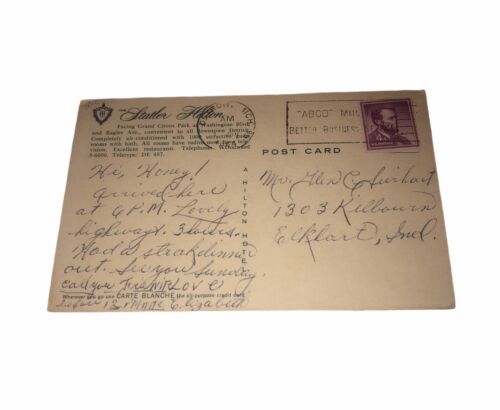 THE Statler Hilton
Facing Grand Circus Park at Washington Blvd.
and Bagley Ave., convenient to all Downtown Detroit.
Completely air-conditioned with 1000 attractive guest
rooms with bath. All rooms have radio; most have tele-
vision. Excellent restaurants. Telephone, WOodward
5-6000. Teletype: DE 447.
DETROIT, MICH.
AM
"ABCD" MAIL
BETTER BUSINESS
POST CARD
A HILTON HOTEL
Hi, Honey!
Arrived here
at 6 P.M. Lovely
highways. 3 hours.
Had a steak dinner
out. See you Sunday.
Call you LOVE
Wherever you go use CARTE BLANCHE the all-purpose credit card
before 12 Elizabeth
Mr. Glen C.
1303 Kilbourn
Elkhart, Ind.